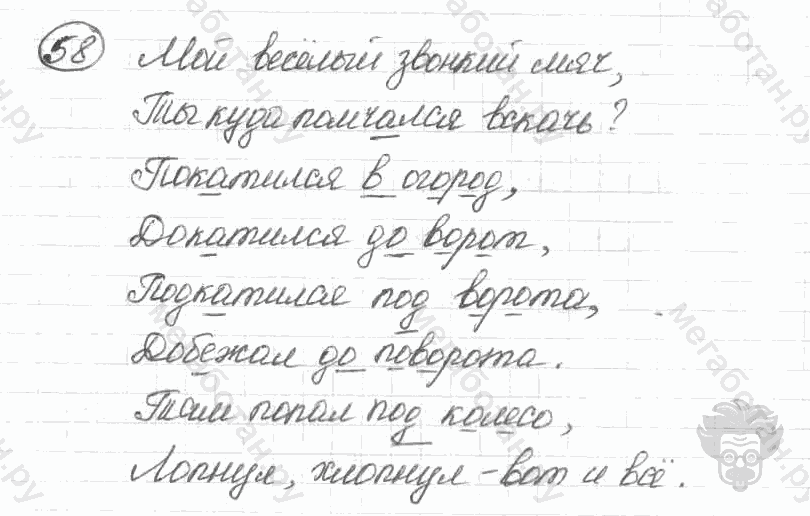 58 Мой весёлый звонкий мяч,
Ты куда помчался вскачь?
Покатился в огород,
Докатился до ворот,
Подкатился под ворота,
Добежал до поворота.
Там попал под колесо,
Лопнул, хлопнул - вот и всё.
мегаботан.ру